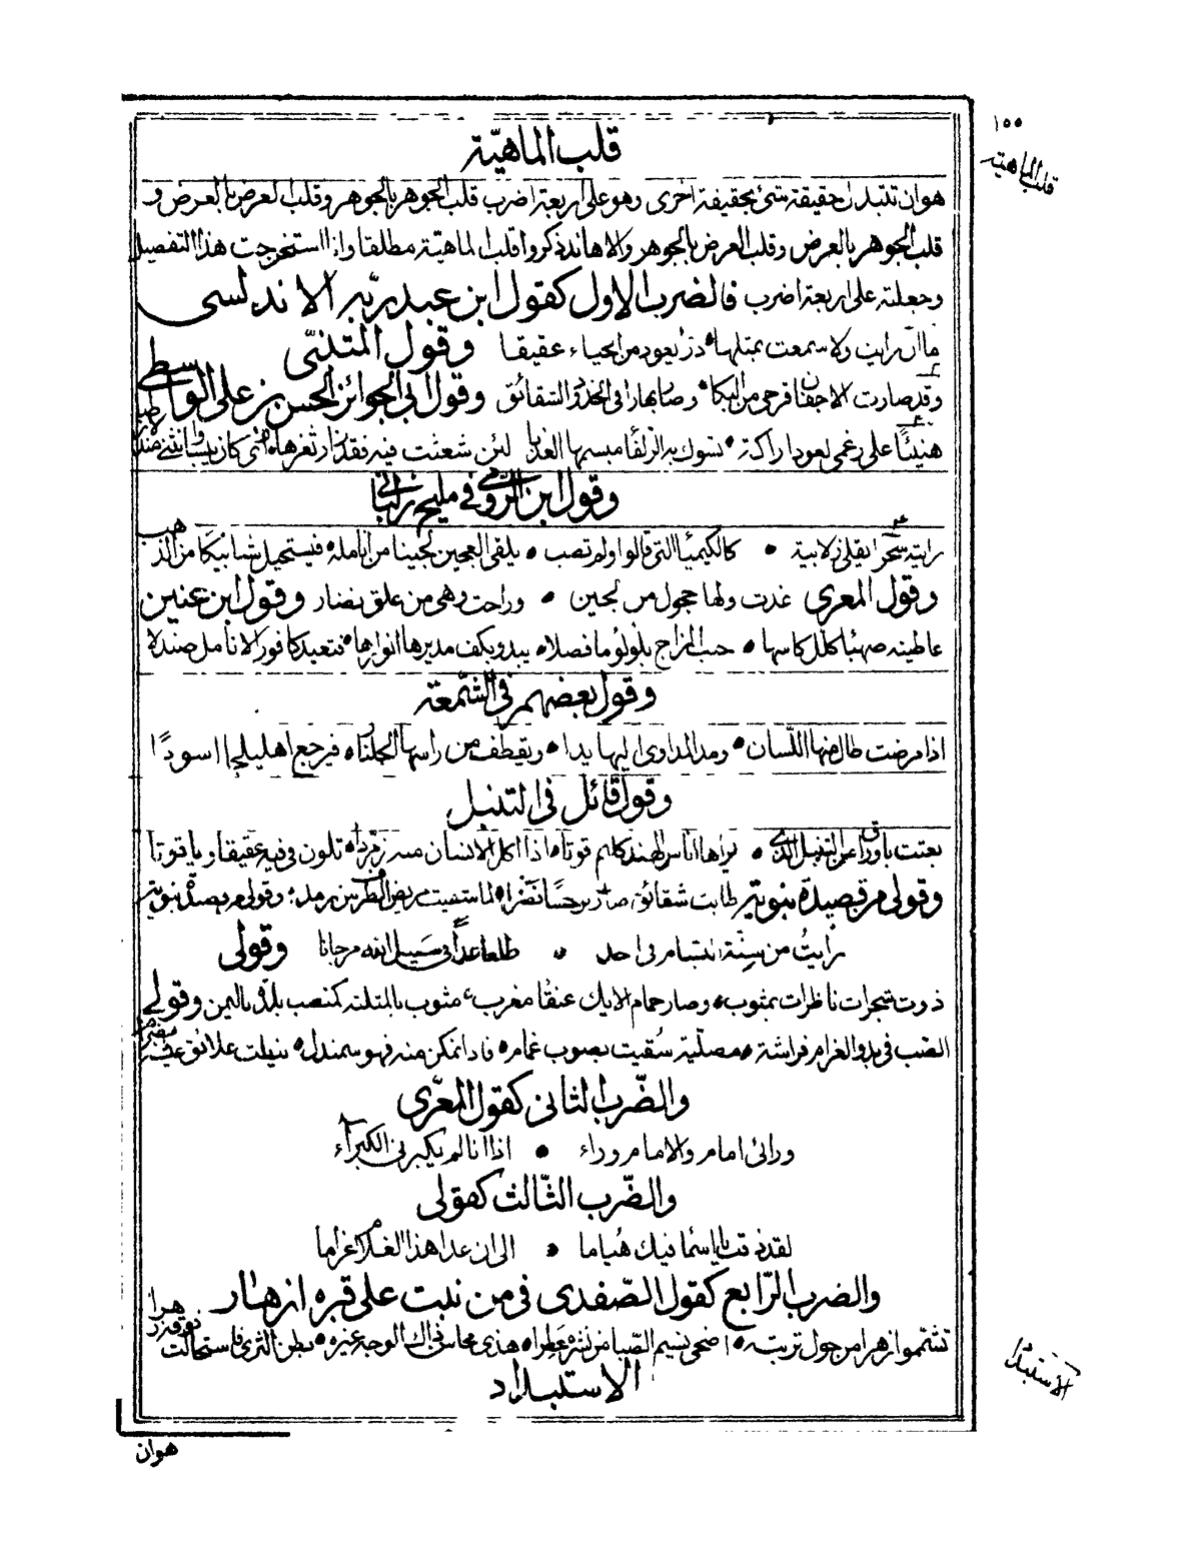 ١٥٥
قلب الماهية
قلب الماهيّة
هو ان تتبدل حقيقة شئ بحقيقة اخرى وهو على اربعة اضرب قلب الجوهر بالجوهر وقلب العرض بالعرض و
قلب الجوهر بالعرض وقلب العرض بالجوهر والاهاند ذكروا قلب الماهيّة مطلقا وانا استخرجت هذا التفصيل
وجعلته على اربعة اضرب فالضرب الاول كقول ابن عبد ربّه الاندلسى
ما ان رايت ولا سمعت بمثلها درّا يعود من الحياء عقيقا وقول المتنبّى
وقد صارت الاجفان قرحى من البكا وصار بهارا فى الخدود الشقائق وقول ابى الجوائز الحسن بن على الواسطى
هنيئا على رغمى لعود اراكة تسوك به الزلفا مبسمها العذبا لئن شعثت فيه فقد زار ثغرها
وقول ابن الرومى فى مليح زلبانى
رايته سَحَرا يقلى زلابية • كالكيمياء التى قالوا ولم تصب • يلقى العجين لجينا من انامله فيستحيل شبابيكا من الذهب
وقول المعرى غدت ولها حجول من لجين • وراحت وهى من علق نضار وقول ابن عنين
عاطيته صهبا كلل كاسها • حبب المزاج بلؤلؤ ما فصلا • يبدو بكف مديرها انوارها فتعيد كافور الانامل صندلا
وقول بعضهم فى الشّمعة
اذا مرضت طال منها اللّسان • ومد المداوى اليها يدا • ويقطف من راسها الجلنار فيرجع اهليلجا اسودًا
وقول قائل فى التنبل
بعثت باوراق من التنبل الذى • يراها اناس الهند كلهم قوتا • اذا اكل الانسان منه زمّردا • تلون فى فيه عقيقا وياقوتا
وقولى من قصيدة نبوية طابت شقائق صار نرجسًا نضرا • لما شفيت مريض الطرف من رمد؛ وقولى من قصيدة نبوية
رايتُ من سِنّة ابتسام فى احد • طلعا غدا فى سَبيل الله مرجانا وقولى
ذوت شجرات ناظرات بمثوب • وصار حمام الايك عنقا مغرب
الصّب فى بدو الغرام فراشة • مصلّية سُقيت بصوب غمام • فاذا تمكن منه فهو سمندل •
والضّرب الثانى كقول المعرّى
ورائى امام والامام وراء • اذا انا لم يكبرنى الكبراء
والضّرب الثّالث كقولى
لقد ذقت يا اسما فيك هُياما • الى ان غدا هذا الغلام غراما
والضرب الرّابع كقول الصّفدى فى من نبت على قبره ازهار
تشتموا زهرا من حول تربته • اضحى نسيم الصّبا من نشره عَطِرا • هذى محاسن ذاك الوجه غيره • بطن الثرى فاستحالت فوقه زهرا
الاستبداد
الاستبداد
هو ان